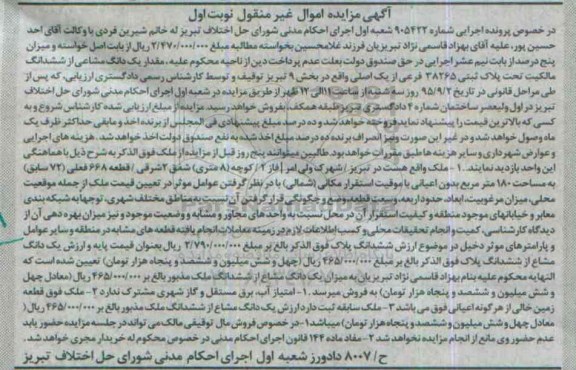 آگهی مزایده اموال غیر منقول نوبت اول
در خصوص پرونده اجرایی شماره ۹۰۵۴۲۲ شعبه اول اجرای احکام مدنی شورای حل اختلاف تبریز له خانم شیرین فردی با وکالت آقای احد
حسین پور، علیه آقای بهزاد قاسمی نژاد تبریزیان فرزند غلامحسین بخواسته مطالبه مبلغ ۲/۴۷۰/۰۰۰/۰۰۰ ریال از بابت اصل خواسته و میزان
پنج درصد از بابت نیم عشر اجرایی در حق صندوق دولت بعلت عدم پرداخت دین از ناحیه محکوم علیه، مقدار یک دانگ مشاعی از ششدانگ
مالکیت تحت پلاک ثبتی ۳۸۲۶۵ فرعی از یک اصلی واقع در بخش ۹ تبریز توقیف و توسط کارشناس رسمی دادگستری ارزیابی، که پس از
طی مراحل قانونی در تاریخ ۹۵/۹/۲ روز سه شنبه از ساعت ۱۱ الی ۱۲ ظهر از طریق مزایده در شعبه اول اجرای احکام مدنی شورای حل اختلاف
تبریز در اول ولیعصر ساختمان شماره ۴ دادگستری تبریز طبقه همکف بفروش خواهد رسید. مزایده از مبلغ ارزیابی شده کارشناس شروع و به
کسی که بالاترین قیمت را پیشنهاد نماید فروخته خواهد شد و ده در صد مبلغ پیشنهادی فی المجلس از برنده اخذ و مابقی حداکثر ظرف یک
ماه وصول خواهد شد و در غیر این صورت و صرف برنده ده درصد مبلغ اخذ شده به نفع صندوق دولت اخذ خواهد شد. هزینه های اجرایی
و عوارض شهرداری و سایر هزینه ها طبق مقررات خواهد بود. طالبین میتوانند پنج روز قبل از مزایده از ملک فوق الذکر به شرح ذیل با هماهنگی
این واحد بازدید نمایند. ۱- ملک واقع هست در تبریز / شهرک ولی امر / فاز ۲ / کوچه (۸ متری) شفق ۲ شرقی / قطعه ۶۶۸ فعلی (۷۲ سابق)
به مساحت ۱۸۰ متر مربع بدون اعیانی با موقعیت استقرار مکانی (شمالی) با در نظر گرفتن عوامل موثر در تعیین قیمت ملک از جمله موقعیت
محلی، میزان مرغوبیت، ابعاد، حدود اربعه، وسعت قطعه، وضع و چگونگی قرار گرفتن آن نسبت به مناطق مختلف شهری، توجها به شبکه بندی
معابر و خیابانهای موجود منطقه و کیفیت استقرار آن در محل نسبت به واحد های مجاور و مشابه و وضعیت موجود و نیز میزان بهره دهی آن از
دیدگاه کارشناسی، کمیت و انجام تحقیقات محلی و کسب اطلاعات لازم در زمینه معاملات انجام یافته قطعه های مشابه در منطقه و سایر عوامل
و پارامترهای موثر دخیل در موضوع ارزش ششدانگ پلاک فوق الذکر بالغ بر مبلغ ۲/۷۹۰/۰۰۰/۰۰۰ ریال بعنوان قیمت پایه و ارزش یک دانگ
مشاع از ششدانگ پلاک فوق الذکر بالغ بر مبلغ ۴۶۵/۰۰۰/۰۰۰ ریال (چهل و شش میلیون و ششصد و پنجاه هزار تومان) تعیین شده است که
النهایه محکوم علیه بنام بهزاد قاسمی نژاد تبریزیان به میزان یک دانگ مشاع از ششدانگ ملک مذبور بالغ بر ۴۶۵/۰۰۰/۰۰۰ ریال (معادل چهل
و شش میلیون و ششصد و پنجاه هزار تومان) به فروش میرسد. ۱- امتیاز آب، برق مستقل و گاز شهری مشترک ندارد ۲- ملک فوق قطعه
زمین خالی از هر گونه اعیانی فوق می باشد ۳- ملک سابقه ثبت دارد ارزش یک دانگ مشاع از ششدانگ ملک مذبور بالغ بر ۴۶۵/۰۰۰/۰۰۰ ریال (
معادل چهل و شش میلیون و ششصد و پنجاه هزار تومان) میباشد ۱- در خصوص فروش مال توقیفی مالک می تواند در جلسه مزایده حضور یابد
عدم حضور وی مانع از انجام مزایده نخواهد شد ۲- مفاد ماده ۱۴۴ قانون اجرای احکام مدنی در خصوص محکوم له خریدار مجری خواهد شد.
ح / ۸۰۰۷ دادورز شعبه اول اجرای احکام مدنی شورای حل اختلاف تبریز